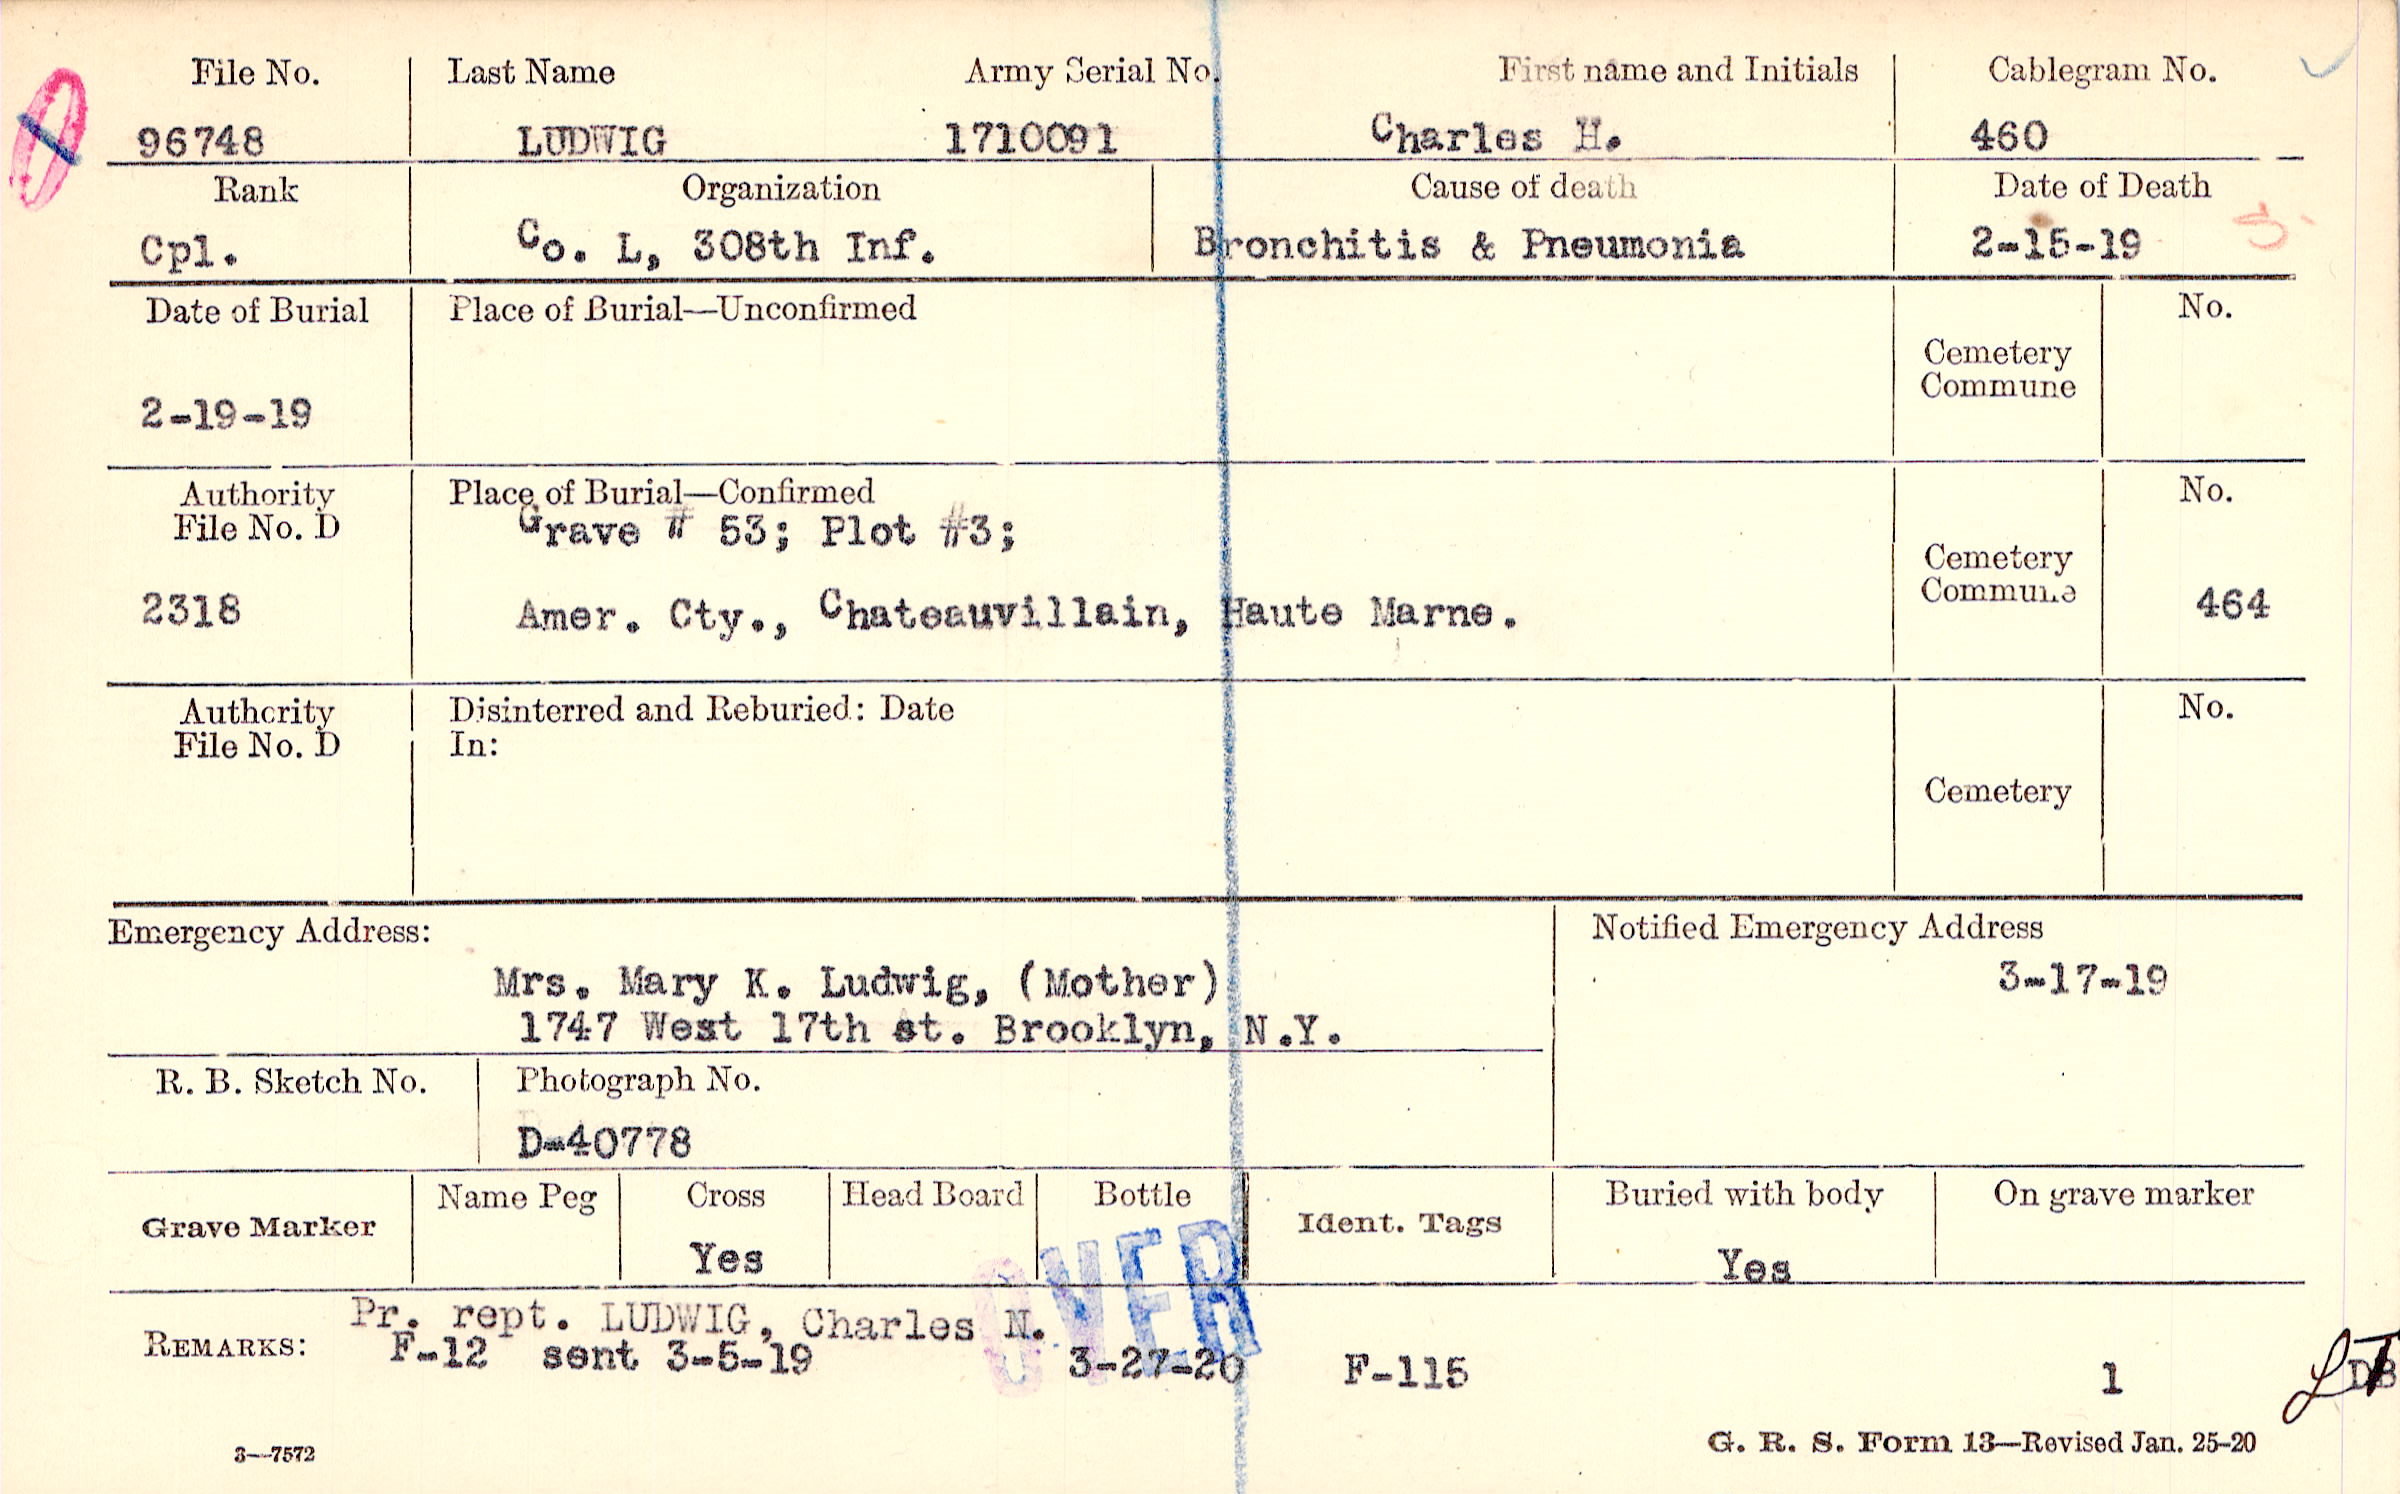 File No. Last Name Army Serial No. First name and Initials Cablegram No.
96748 LUDWIG 1710091 Charles H. 460
Rank Organization Cause of death Date of Death
Cpl. Co. L, 308th Inf. Bronchitis & Pneumonia 2-15-19
Date of Burial Place of Burial—Unconfirmed No.
Cemetery
Commune
2-19-19
Authority Place of Burial—Confirmed No.
File No. D Grave # 53; Plot #3;
Cemetery
Commune
2318 Amer. Cty., Chateauvillain, Haute Marne. 464
Authority Disinterred and Reburied: Date No.
File No. D In:
Cemetery
Emergency Address: Notified Emergency Address
Mrs. Mary K. Ludwig, (Mother) 3-17-19
1747 West 17th st. Brooklyn, N.Y.
R. B. Sketch No. Photograph No.
D-40778
Name Peg Cross Head Board Bottle Buried with body On grave marker
Grave Marker Ident. Tags
Yes Yes
OVER
Pr. rept. LUDWIG, Charles N.
REMARKS: F-12 sent 3-5-19 3-27-20 F-115 1
3—7572 G. R. S. Form 13—Revised Jan. 25-20